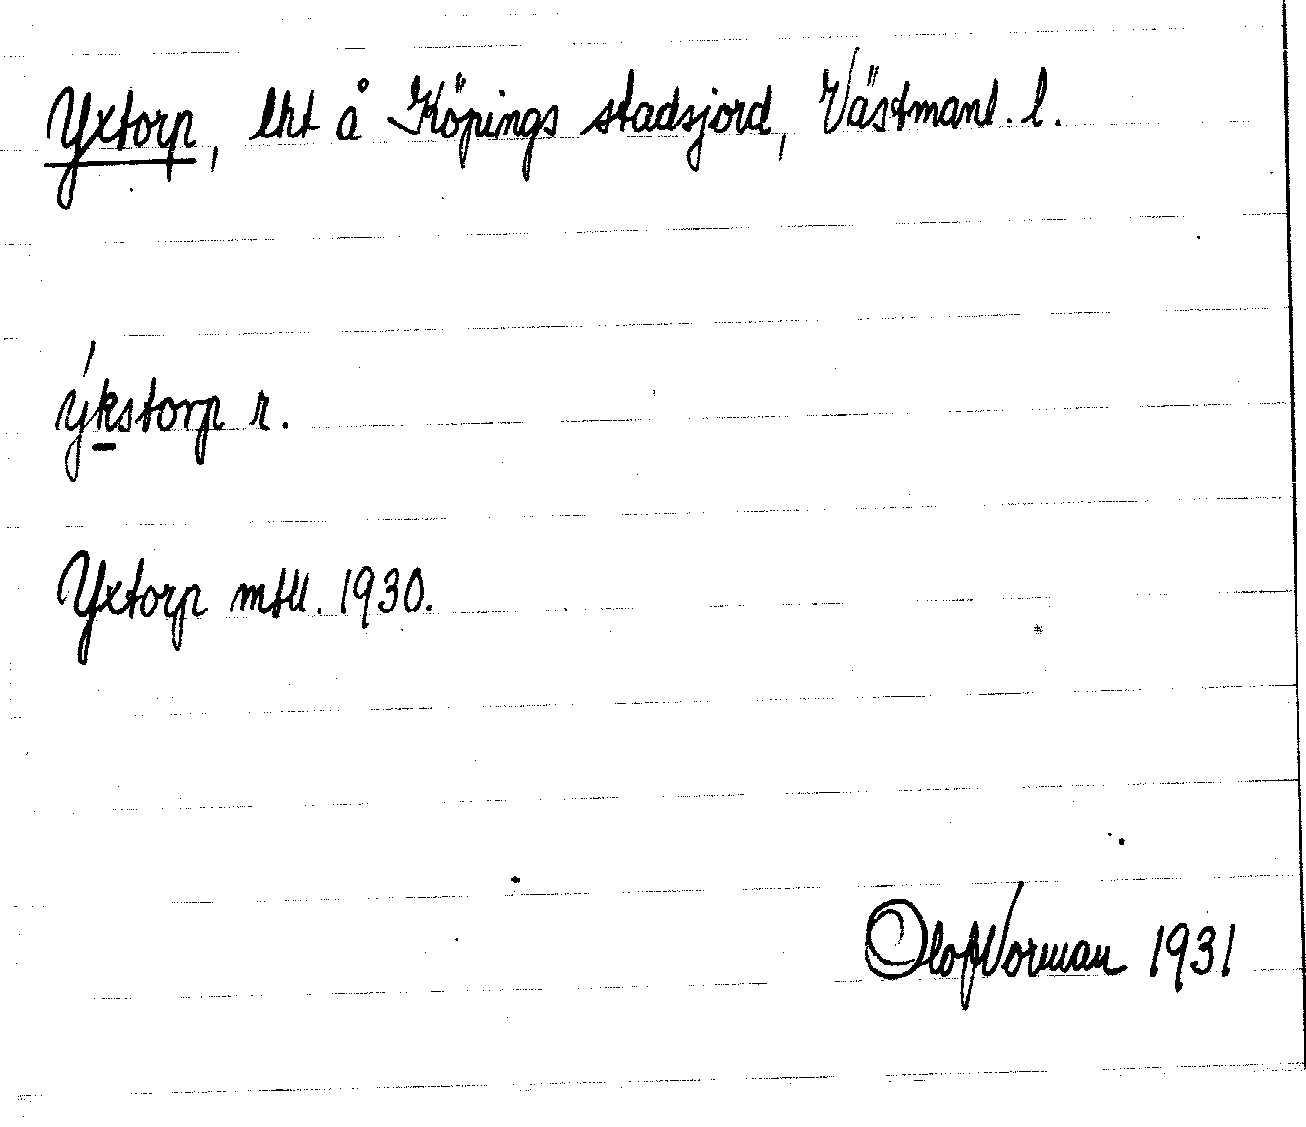 Yxtorp, lht å Köpings stadsjord, Västmanl. l.
ýkstorp r.
Yxtorp mtll. 1930.
Olof Norman 1931